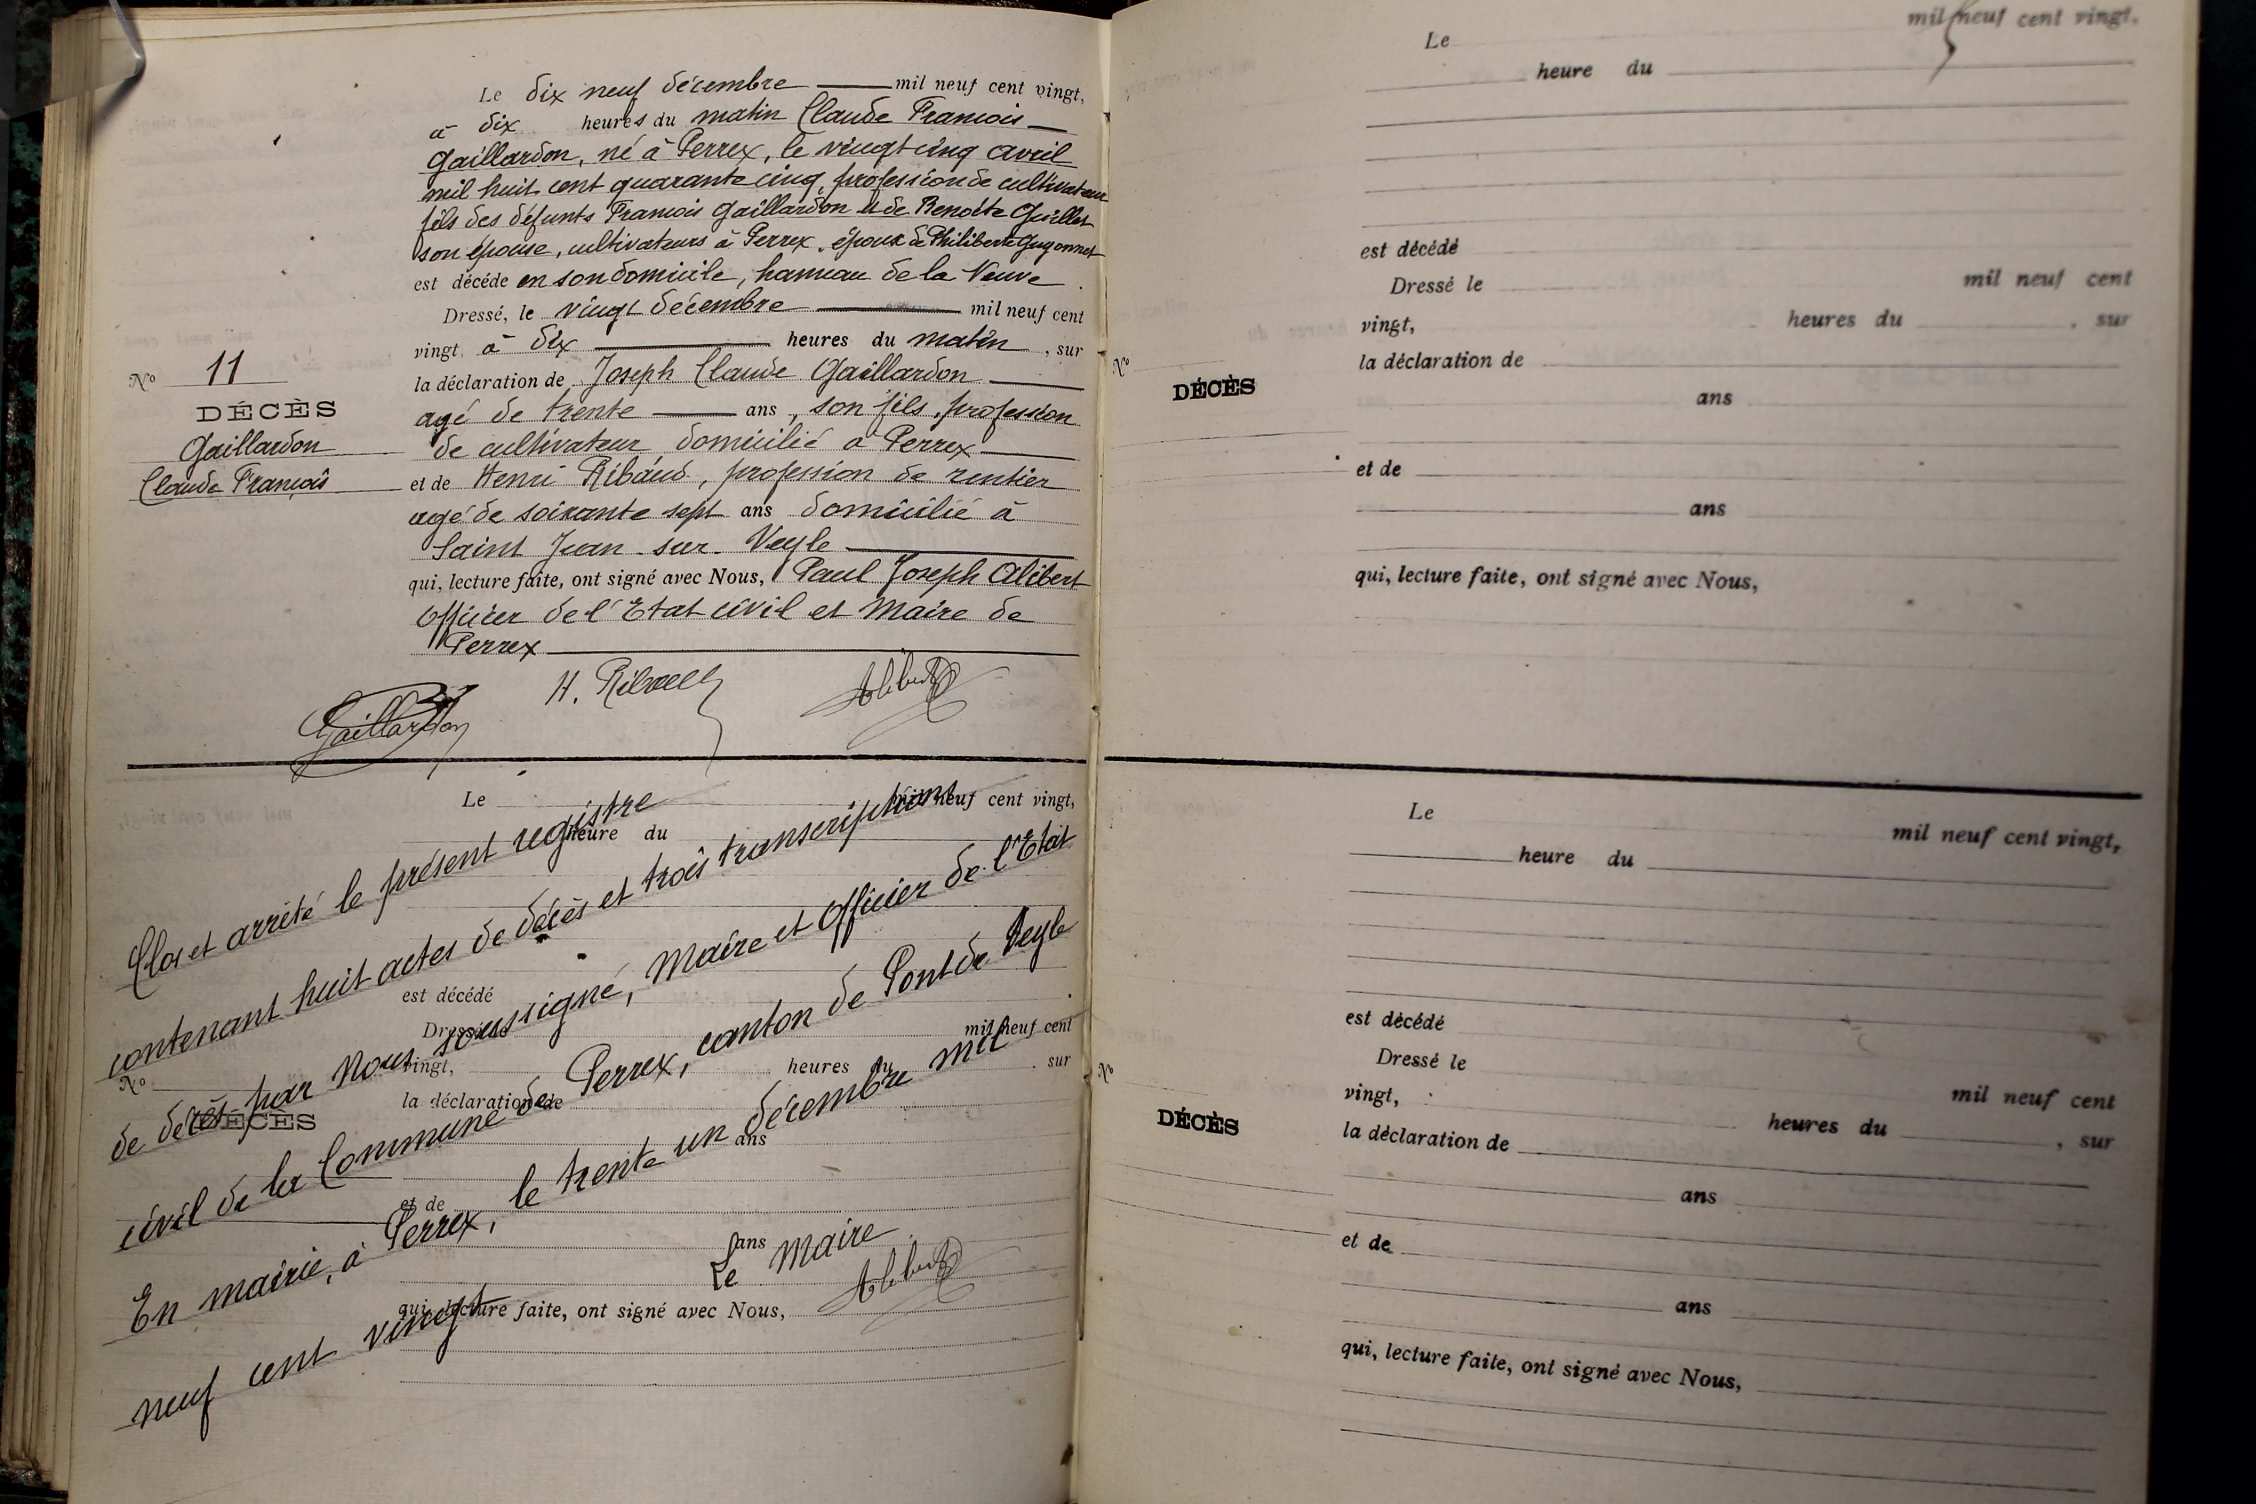 Le dix neuf décembre mil neuf cent vingt,
à dix heures du matin Claude François
Gaillardon, né à Perrex, le vingt cinq avril
mil huit cent quarante cinq, profession de cultivateur
fils des défunts François Gaillardon et de Benoite Guillet
son épouse, cultivateurs à Perrex, époux de Philiberte Guyonnet
est décédé en son domicile, hameau de la Veuve.
Dressé, le vingt décembre mil neuf cent
vingt, à dix heures du matin, sur
la déclaration de Joseph Claude Gaillardon
agé de trente ans, son fils, profession
de cultivateur domicilié à Perrex
et de Henri Ribaud, profession de rentier
agé de soixante sept ans domicilié à
Saint Jean sur Veyle
qui, lecture faite, ont signé avec Nous, Paul Joseph Alibert
Officier de l'Etat civil et Maire de
Perrex
Nº 11
DÉCÈS
Gaillardon
Claude François
Gaillardon
H. Ribaud
Alibert
Le mil neuf cent vingt,
heure du
est décédé
Dressé le mil neuf cent
vingt, heures du sur
la déclaration de
ans
et de
ans
qui, lecture faite, ont signé avec Nous,
Nº
DÉCÈS
Clos et arrêté le présent registre
contenant huit actes de décès et trois transcriptions
de décès par Nous soussigné, Maire et Officier de l'Etat
civil de la Commune de Perrex, canton de Pont de Veyle
En mairie, à Perrex, le trente un décembre mil
neuf cent vingt
Le Maire
Alibert
Le mil neuf cent vingt,
heure du
est décédé
Dressé le mil neuf cent
vingt, heures du , sur
la déclaration de
ans
et de
ans
qui, lecture faite, ont signé avec Nous,
Nº
DÉCÈS
Le mil neuf cent vingt,
heure du
est décédé
Dressé le mil neuf cent
vingt, heures du , sur
la déclaration de
ans
et de
ans
qui, lecture faite, ont signé avec Nous,
Nº
DÉCÈS